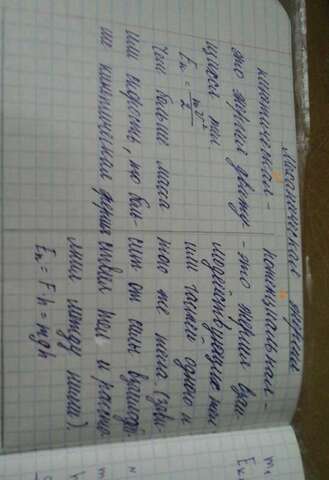 Механическая энергия
кинетическая -
это энергия движу-
щихся тел
Eк = mv²/2
Чем больше масса
или скорость, то боль-
ше кинетическая энергия
потенциальная -
- это энергия взаи-
модействующих тел
или частей одного и
того же тела. (зави-
сит от силы взаимодей-
ствия тел и расстоя-
ния между ними).
Eп = F·h = mgh
m₁
Eк